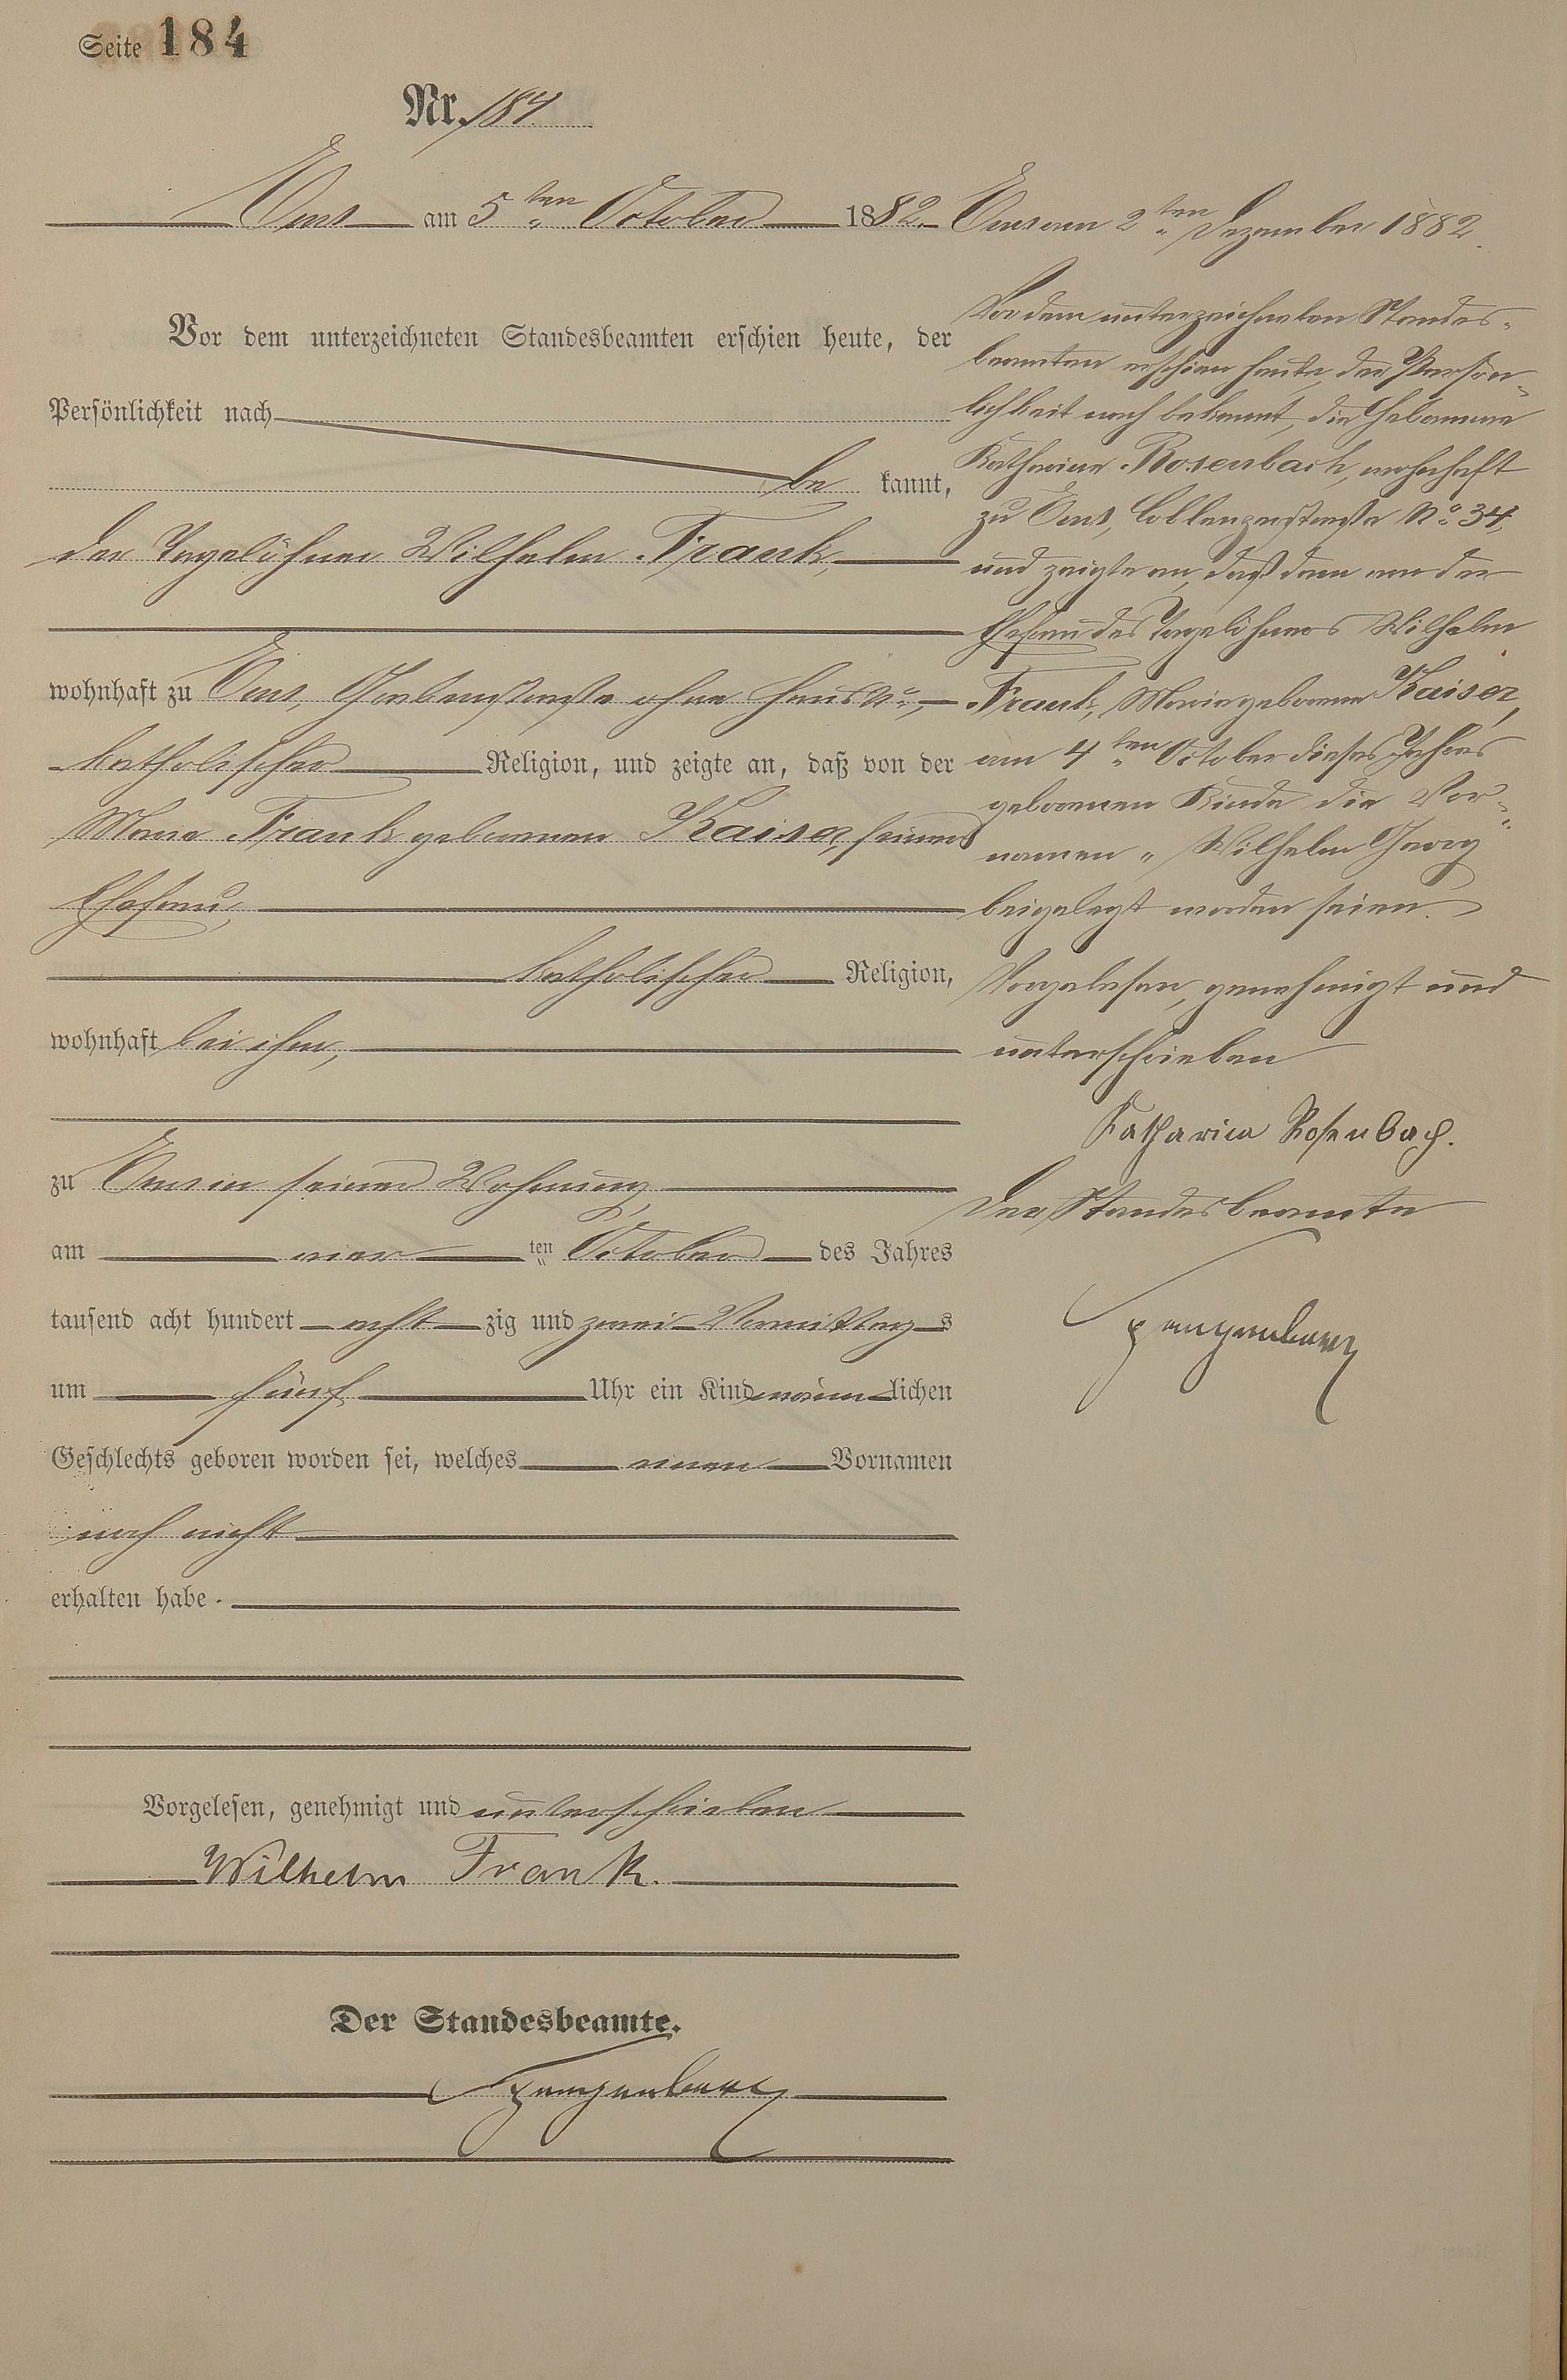 Seite 184
Nr. 184.
Ems am 5ten October 1882.
Vor dem unterzeichneten Standesbeamten erschien heute, der
Persönlichkeit nach
be kannt,
der Tagelöhner Wilhelm Frank,
wohnhaft zu Ems, ohne Haus No,
katholischer Religion, und zeigte an, daß von der
Marie Frank geborenen Kaiser, seiner
Ehefrau,
katholischer Religion,
wohnhaft bei ihm,
zu Ems in seiner Wohnung,
am vier ten October des Jahres
tausend acht hundert acht zig und zwei Vormittag s
um fünf Uhr ein Kind männ lichen
Geschlechts geboren worden sei, welches einen Vornamen
noch nicht
erhalten habe.
Vorgelesen, genehmigt und unterschrieben
Wilhelm Frank.
Der Standesbeamte.
Ems am 2ten Dezember 1882.
Vor dem unterzeichneten Standes-
beamten erschien heute, der Persön-
lichkeit nach bekannt, die Hebamme
Katharina Rosenbach, wohnhaft
zu Ems, Coblenzerstraße No 34,
und zeigte an, daß dem von der
Ehefrau des Tagelöhners Wilhelm
Frank, Marie geborene Kaiser,
am 4ten October dieses Jahres
geborenen Kinde die Vor-
namen „ Wilhelm Georg
beigelegt worden seien.
Vorgelesen, genehmigt und
unterschrieben
Katharina Rosenbach.
Der Standesbeamte